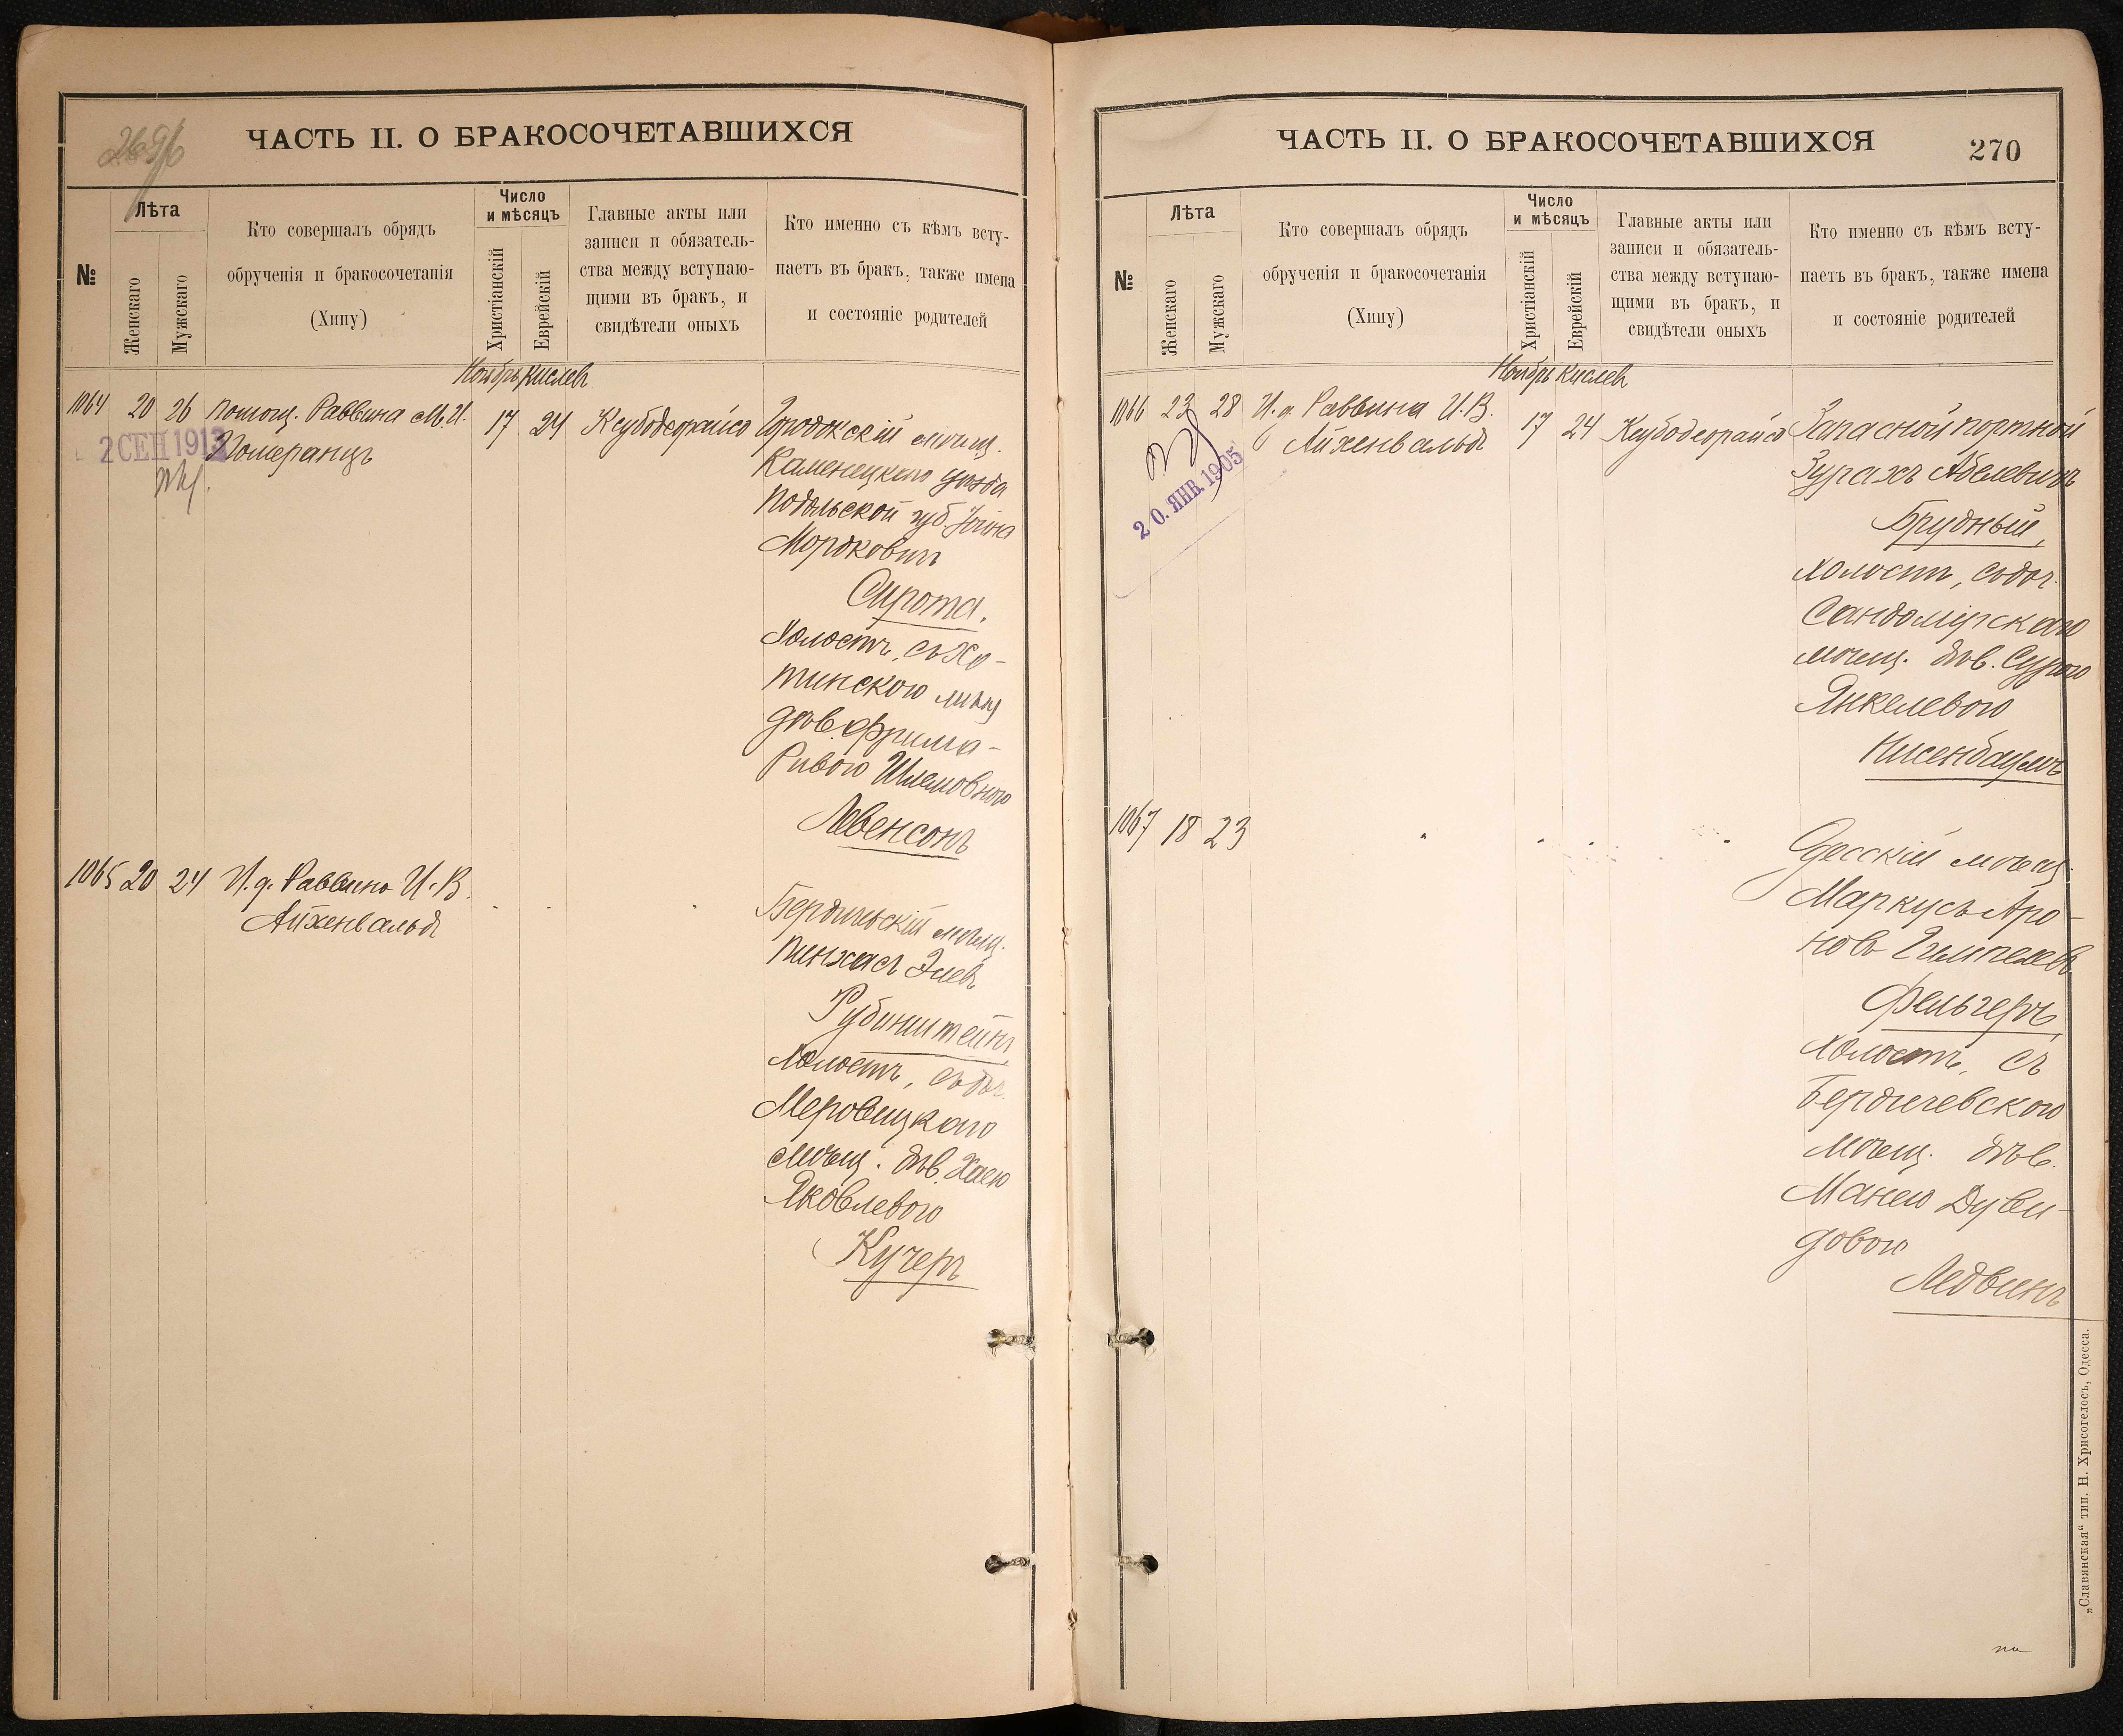 ЧАСТЬ II. О БРАКОСОЧЕТАВШИХСЯ
№
Лѣта
Женскаго
Мужскаго
Кто совершалъ обрядъ
обрученія и бракосочетанія
(Хипу)
Число
и мѣсяцъ
Христіанскій
Еврейскій
Главные акты или
записи и обязатель-
ства между вступаю-
щими въ бракъ, и
свидѣтели оныхъ
Кто именно съ кѣмъ всту-
паетъ въ бракъ, также имена
и состояніе родителей
Ноябрь Кислев
1064 20 26 Помощ. Раввина М. И.
Померанцъ
2 СЕН 1913
17 24 Кеубодеорайсо
Городокскій мѣщ.
Каменецкаго уѣзда
Подольской губ. Іойна
Мордковичъ
Сирота.
Холостъ, съ Хо-
тинскою мѣщ
дѣв. Фрима-
Ривою Шлемовною
Левенсонъ
1065 20 24 И. д. Раввина И. В.
Айхенвальд
Бердичевскій мѣщ.
Пинхасъ Элевъ
Рубинштейнъ
холостъ, съ доч.
Меровицкаго
мѣщ. дѣв. Хаею
Яковлевою
Кучеръ
ЧАСТЬ II. О БРАКОСОЧЕТАВШИХСЯ
270
№
Лѣта
Женскаго
Мужскаго
Кто совершалъ обрядъ
обрученія и бракосочетанія
(Хипу)
Число
и мѣсяцъ
Христіанскій
Еврейскій
Главные акты или
записи и обязатель-
ства между вступаю-
щими въ бракъ, и
свидѣтели оныхъ
Кто именно съ кѣмъ всту-
паетъ въ бракъ, также имена
и состояніе родителей
Ноябрь Кислев
1066 23 28 И. д. Раввина И. В.
Айхенвальд
20. ЯНВ. 1905
17 24 Кеубодеорайсо
Запасной портной
Зурахъ Абелевичъ
Брудный,
холостъ, съ доч.
Сандомірскаго
мѣщ. дѣв. Сурою
Янкелевою
Нисенбаумъ
1067 18 23
Одесскій мѣщ.
Маркусъ Аро-
новъ Гимпелевъ
Фельгеръ
холостъ, съ
Бердичевскою
мѣщ. дѣв.
Манею Дуви-
довою
Ледвинъ
„Славянская“ тип. Н. Хрисогелосъ, Одесса.